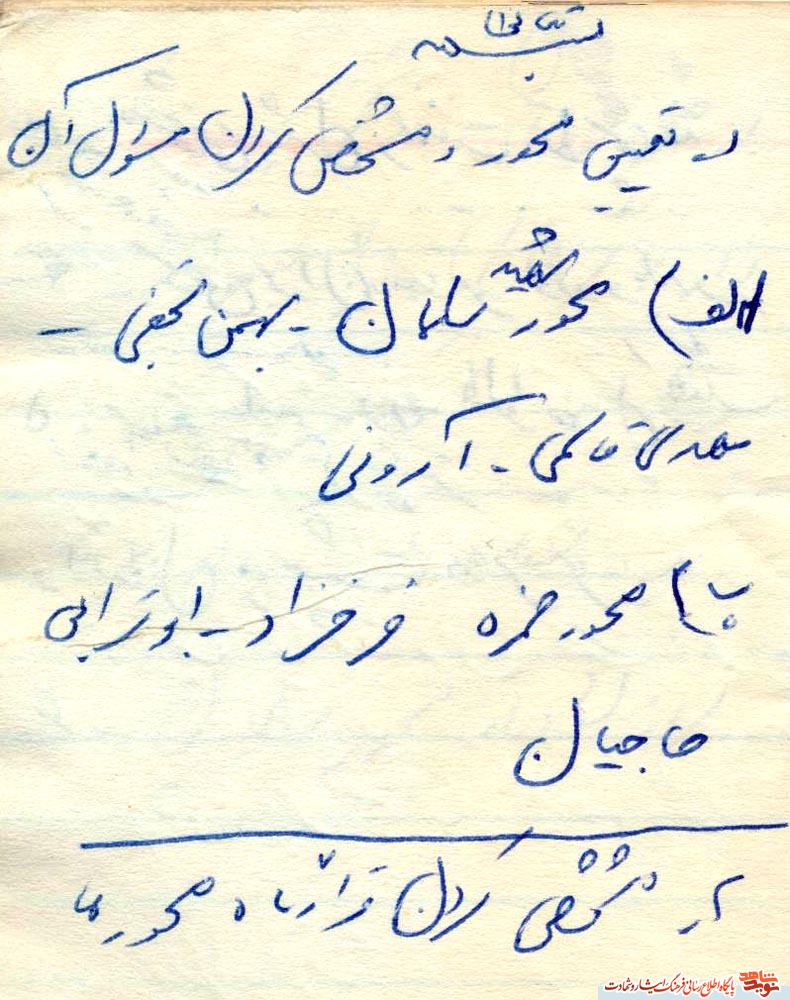 بسمه تعالی
۱ـ تعیین محور و مشخص کردن مسئول آن
الف) محور شهید سلمان - بهمن نجفی -
مهدی قائمی - آرونی
ب) محور حمزه فرخزاد - ابوترابی
حاجیان
۲ـ مشخص کردن قرارگاه محورها
نوید شاهد
پایگاه اطلاع رسانی فرهنگ ایثار و شهادت